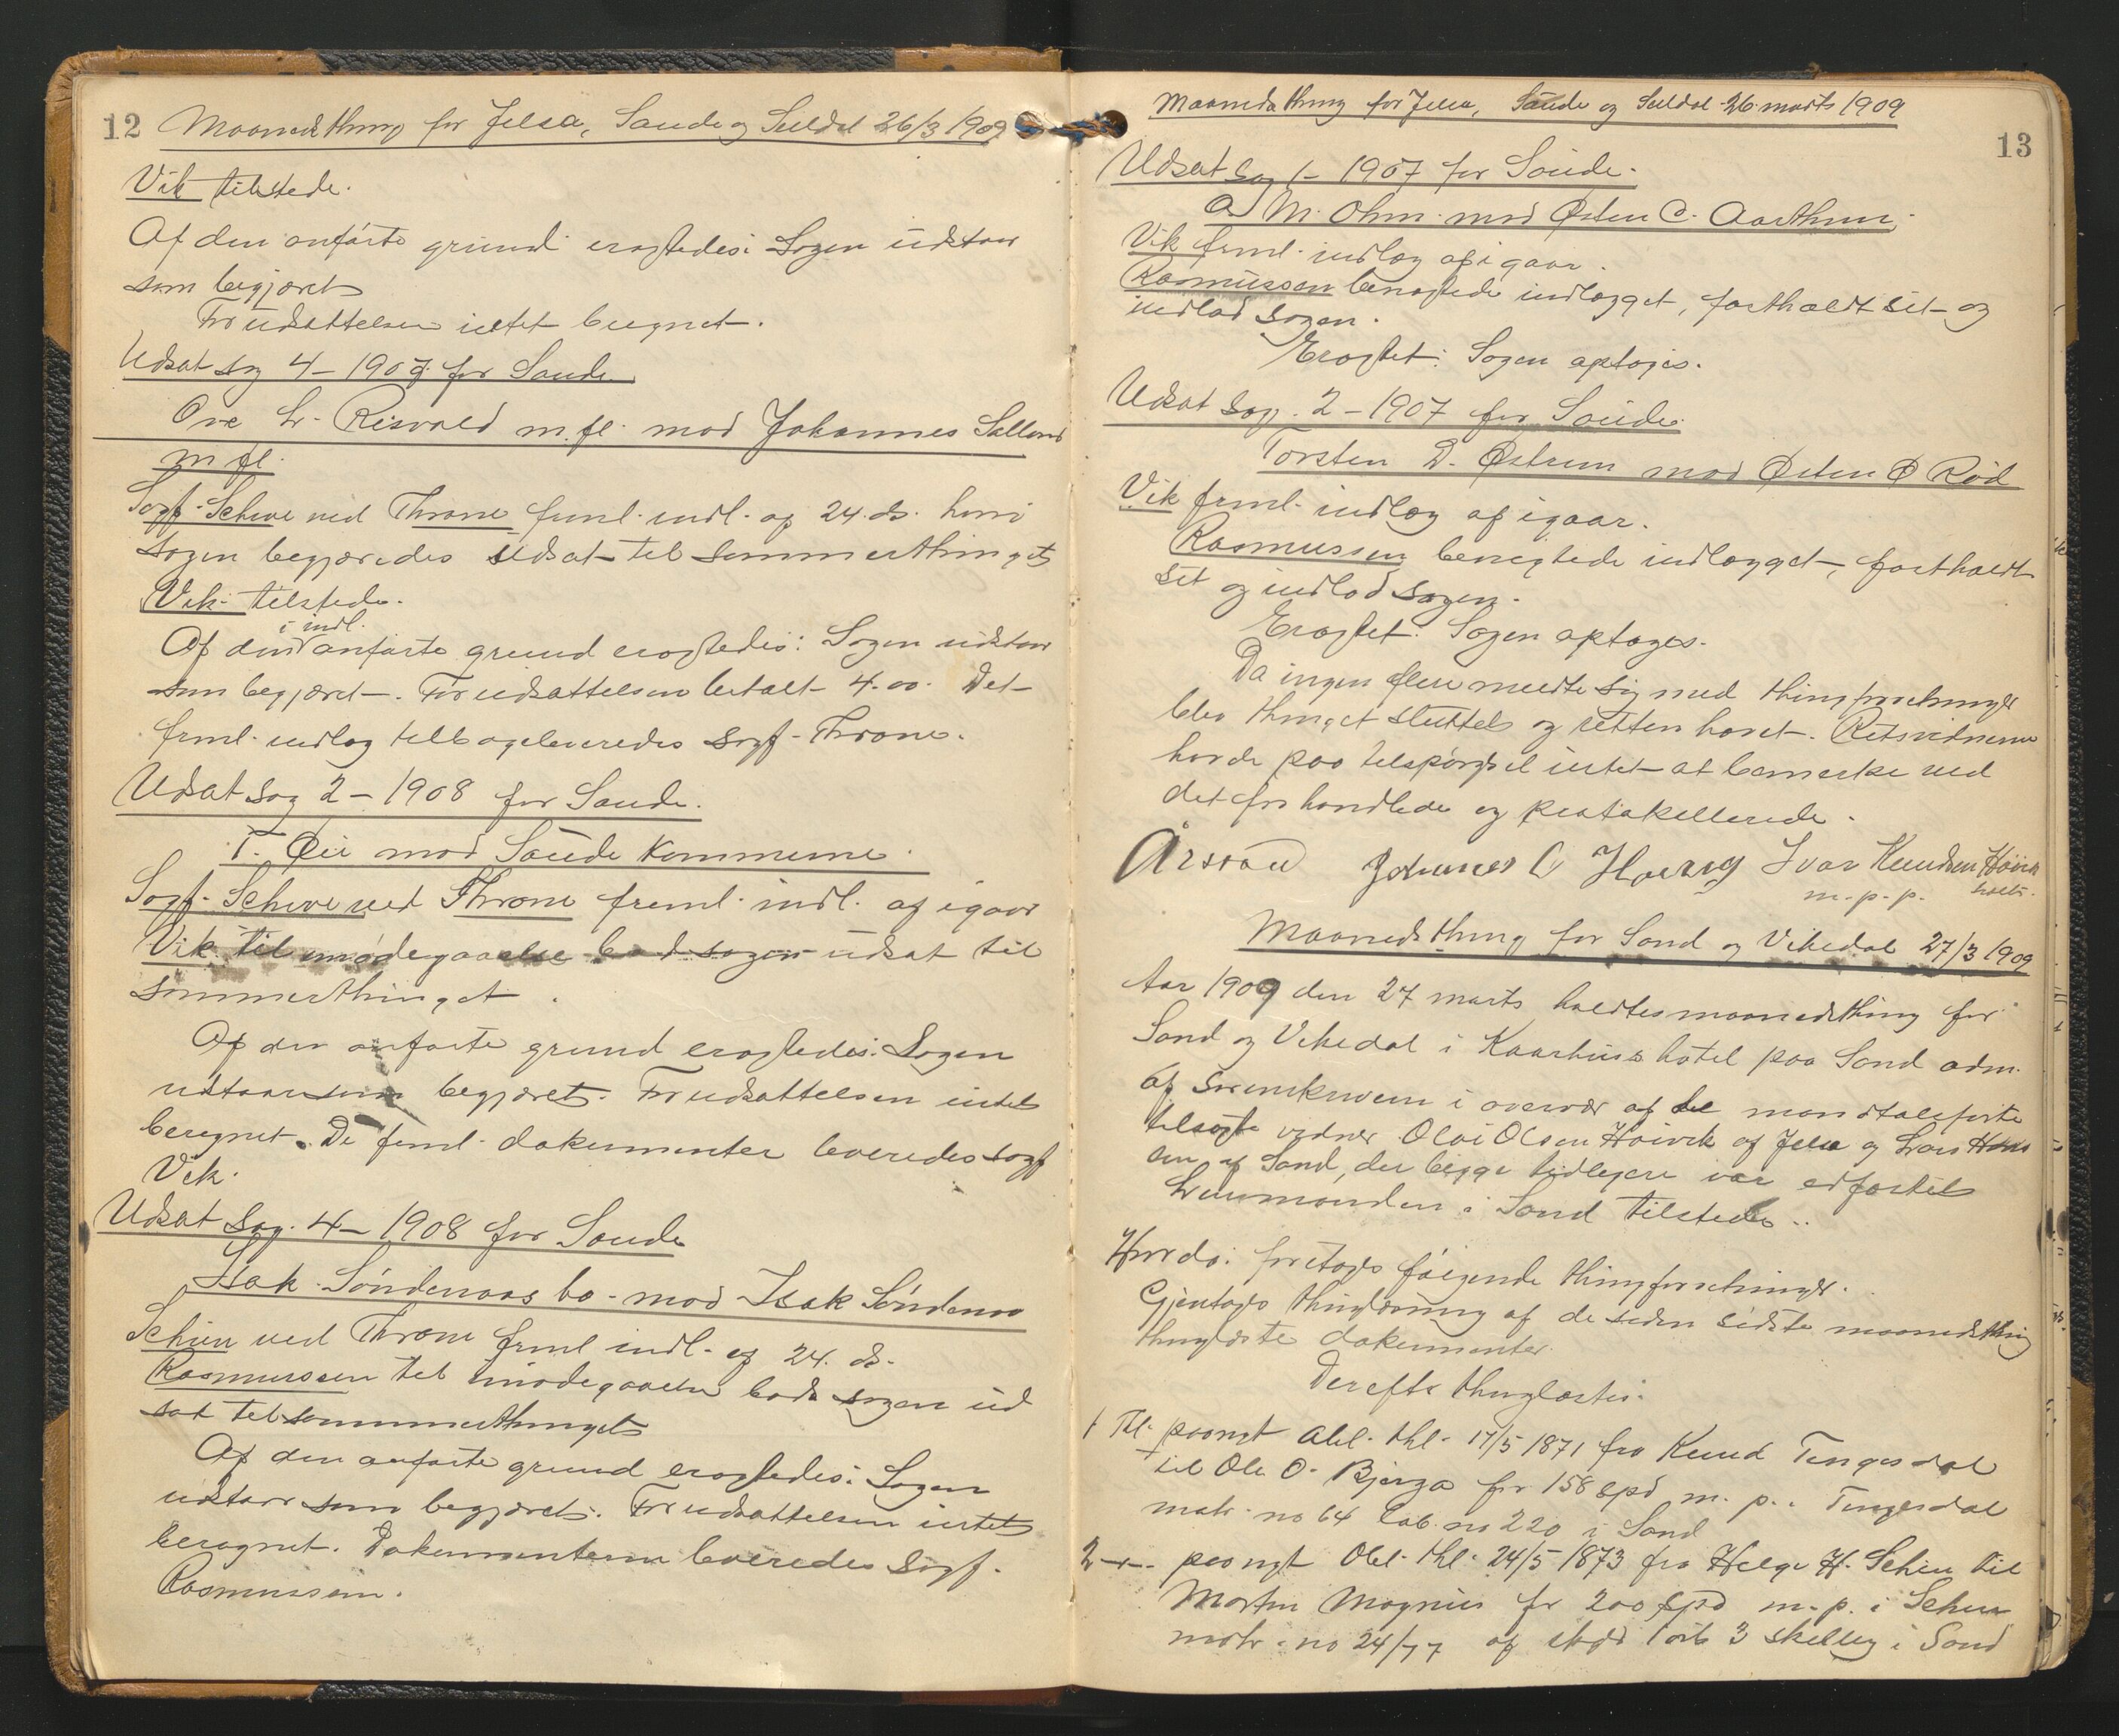 12 Maanedsthing for Jelsa, Saude og Suldal 26/3 1909
Vik tilstede.
Af den anførte grund eragtedes: Sagen udstaar
som begjæret
For udsættelsen intet beregnet.
Udsat sag 4-1907 for Saude.
Ove L. Risvold m.fl. mod Johannes Salland
m fl.
Sagf. Scheie ved Throne freml. indl. af 24. ds. hvori
sagen begjæredes udsat til sommerthinget
Vik tilstede.
i indl.
Af den anførte grund eragtedes: Sagen udstaar
som begjæret. For udsættelsen betalt 4.00. Det
freml. indlæg tilbageleveredes sagf. Throne.
Udsat sag 2-1908 for Saude.
T. Øie mod Saude Kommune.
Sagf. Scheie ved Throne freml. indl. af igaar
Vik til imødegaaelse bad sagen udsat til
sommerthinget.
Af den anførte grund eragtedes: Sagen
udstaar som begjæret. For udsættelsen intet
beregnet. De freml. dokumenter leveredes sagf
Vik.
Udsat sag. 4-1908 for Saude
Isak Søndenaas bo mod Isak Søndenaa
Scheie ved Throne freml indl. af 24. ds.
Rasmussen til imødegaaelse bad sagen ud
sat til sommerthinget
Af den anførte grund eragtedes: Sagen
udstaar som begjæret. For udsættelsen intet
beregnet. Dokumenterne leveredes sagf.
Rasmussen.
Maanedsthing for Jelsa, Saude og Suldal 26 marts 1909
13
Udsat sag 1-1907 for Saude.
A M. Ohm mod Østen C. Aarthun.
Vik freml. indlæg af igaar.
Rasmussen benægtede indlægget, fastholdt sit og
indlod sagen.
Eragtet: Sagen optages.
Udsat sag. 2-1907 for Saude.
Torsten D. Østrem mod Østen Ø Rød
Vik freml. indlæg af igaar.
Rasmussen benegtede indlægget, fastholdt
sit og indlod sagen.
Eragtet: Sagen optages.
Da ingen flere meldte sig med thingforretninger
blev thinget sluttet og retten hævet. Retsvidnerne
havde paa tilspørgsel intet at bemerke ved
det forhandlede og protokollerede.
Årsvåu Johannes Ivar Knudsen Høivik
m.p.p.
Maanedsthing for Sand og Vikedal 27/3 1909
Aar 1909 den 27 marts holdtes maanedsthing for
Sand og Vikedal i Kaarhus hotel paa Sand adm.
af sorenskriveren i overvær af de mandtalsførte
tilsagte vidner Olai Olsen Høivik af Jelsa og Lars Hans
sen af Sand, der begge tidligere var edfæstet
Lensmanden i Sand tilstede.
Hvorda: foretoges følgende thingforretninger.
Gjentoges thinglæsning af de siden sidste maanedsthing
thinglæste dokumenter.
Derefter thinglæstes:
1 Thl. paangt Obl. thl. 17/5 1871 fra Knud Tengesdal
til Ole O. Bjerga for 158 spd m. p. i Tengesdal
matr. no 64 løb. no 220 i Sand
2 -"- paangt Obl. thl. 24/5 1873 fra Helge H. Scheie til
Morten Magnus for 200 spd m. p. i Scheie
matr. no 24/77 af skyld 1 ort 3 skilling i Sand